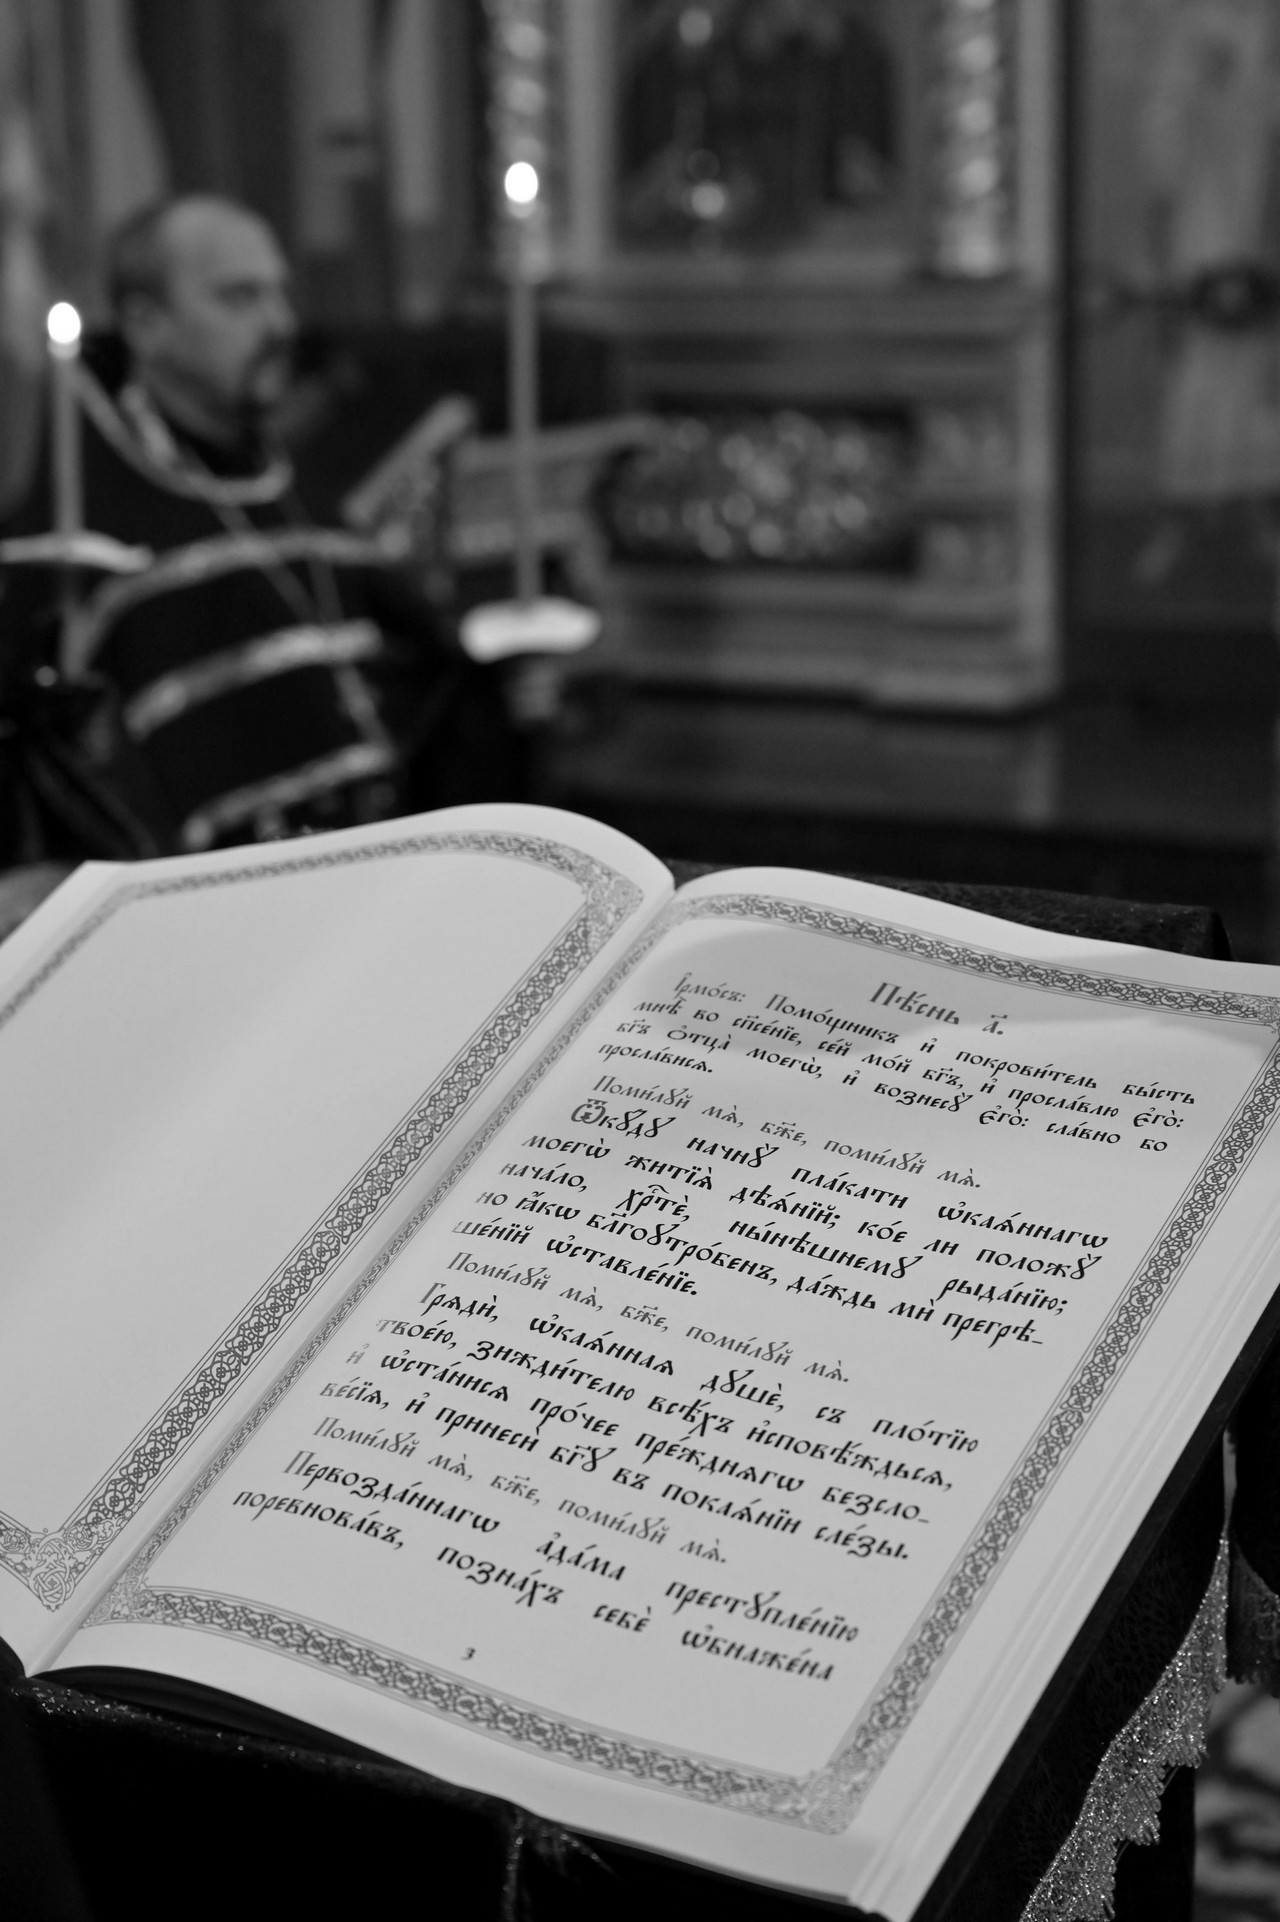 Пѣ́снь а҃.
І҆рмо́съ: Помо́щникъ и҆ покрови́тель бы́сть
мнѣ̀ во сп҃се́нїе, се́й мо́й бг҃ъ, и҆ просла́влю є҆го̀:
бг҃ъ ѻ҆тца̀ моегѡ̀, и҆ вознесꙋ̀ є҆го̀: сла́вно бо
просла́висѧ.
Поми́лꙋй мѧ̀, бж҃е, поми́лꙋй мѧ̀.
Ѿкꙋ́дꙋ начнꙋ̀ пла́кати ѡ҆каѧ́ннагѡ
моегѡ̀ житїѧ̀ дѣѧ́нїй; ко́е ли положꙋ̀
нача́ло, хрⷭ҇тѐ, ны́нѣшнемꙋ рыда́нїю;
но ꙗ҆́кѡ бл҃гоꙋтро́бенъ, да́ждь мѝ прегрѣ-
ше́нїй ѡ҆ставле́нїе.
Поми́лꙋй мѧ̀, бж҃е, поми́лꙋй мѧ̀.
Грѧдѝ, ѡ҆каѧ́ннаѧ дꙋшѐ, съ пло́тїю
твое́ю, зижди́телю всѣ́хъ и҆сповѣ́ждьсѧ,
и҆ ѡ҆ста́нисѧ про́чее пре́жднѧгѡ безсло-
ве́сїѧ, и҆ принесѝ бг҃ꙋ въ покаѧ́нїи сле́зы.
Поми́лꙋй мѧ̀, бж҃е, поми́лꙋй мѧ̀.
Первозда́ннагѡ а҆да́ма престꙋпле́нїю
поревнова́въ, позна́хъ себѐ ѡ҆бнаже́на
3